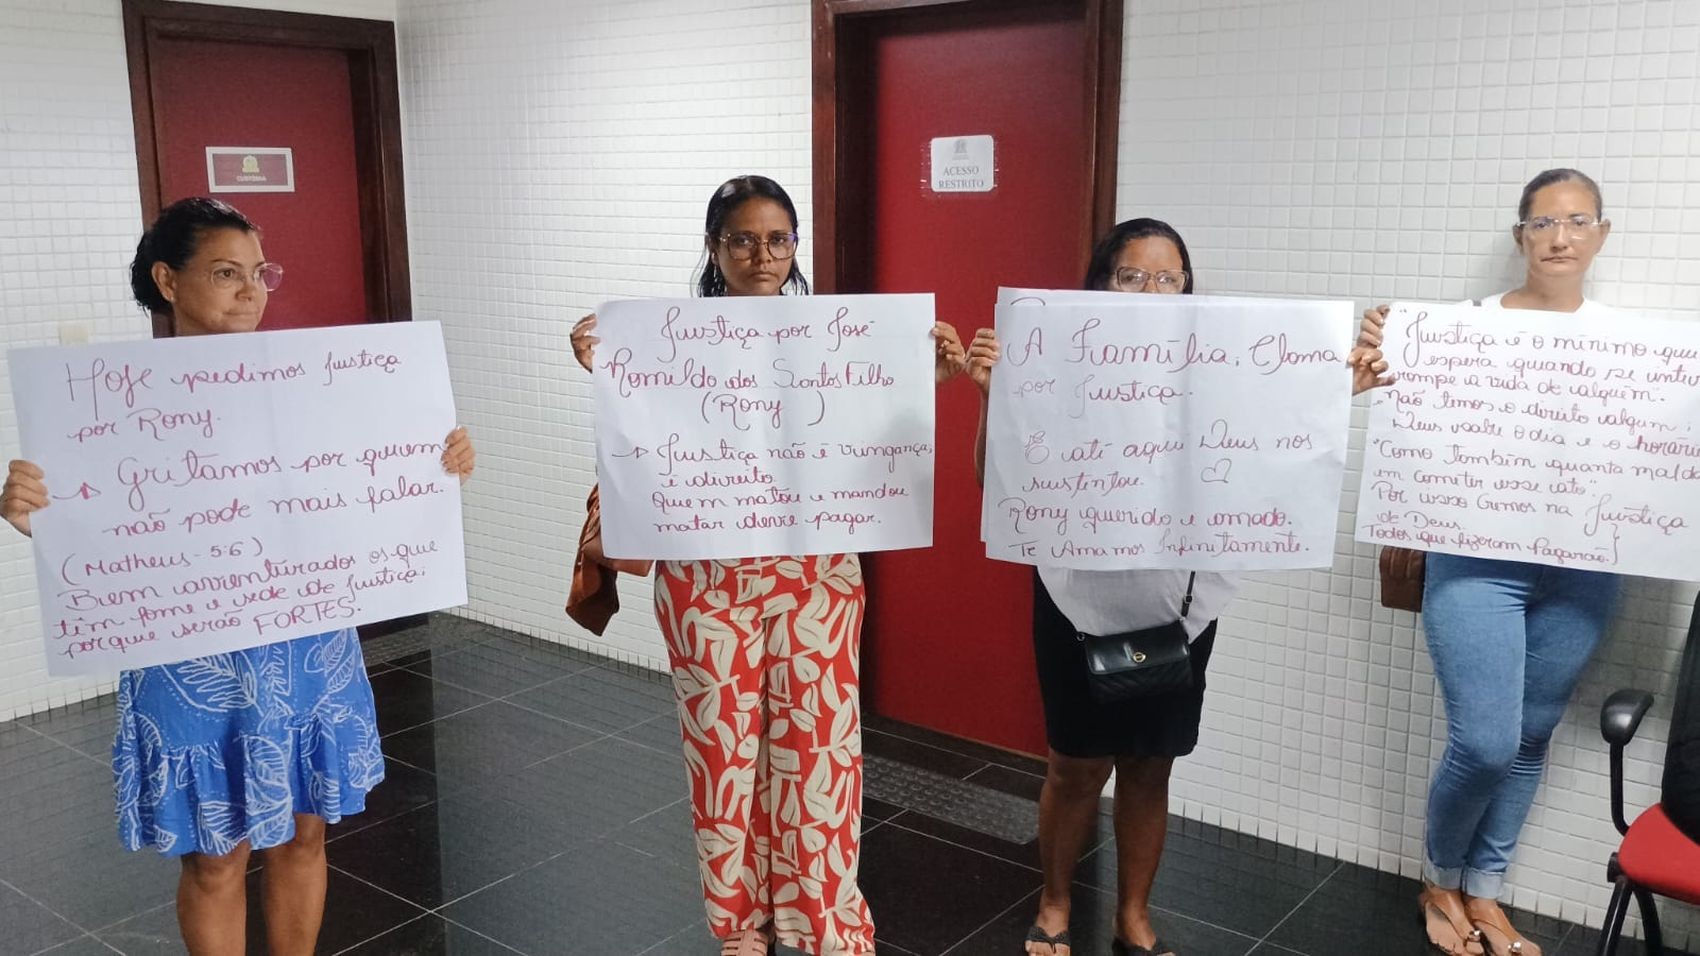 CUSTÓDIA
ACESSO
RESTRITO
Hoje pedimos justiça
por Rony.
Gritamos por quem
não pode mais falar.
(Matheus - 5:6)
Bem aventurados os que
têm fome e sede de justiça;
porque serão FORTES.
Justiça por José
Romildo dos Santos Filho
(Rony )
Justiça não é vingança;
é direito.
Quem matou e mandou
matar deve pagar.
A Família, Clama
por Justiça.
E até aqui Deus nos
sustentou.
Rony querido e amado.
Te Amamos Infinitamente.
"Justiça é o mínimo que
espera quando se inter
rompe a vida de alguém".
não temos o direito algum;
Deus sabe o dia e o horário
"Como também quanta malda
em cometer esse ato".
Por isso Cremos na Justiça
de Deus.
Todos que fizeram Pagarão!